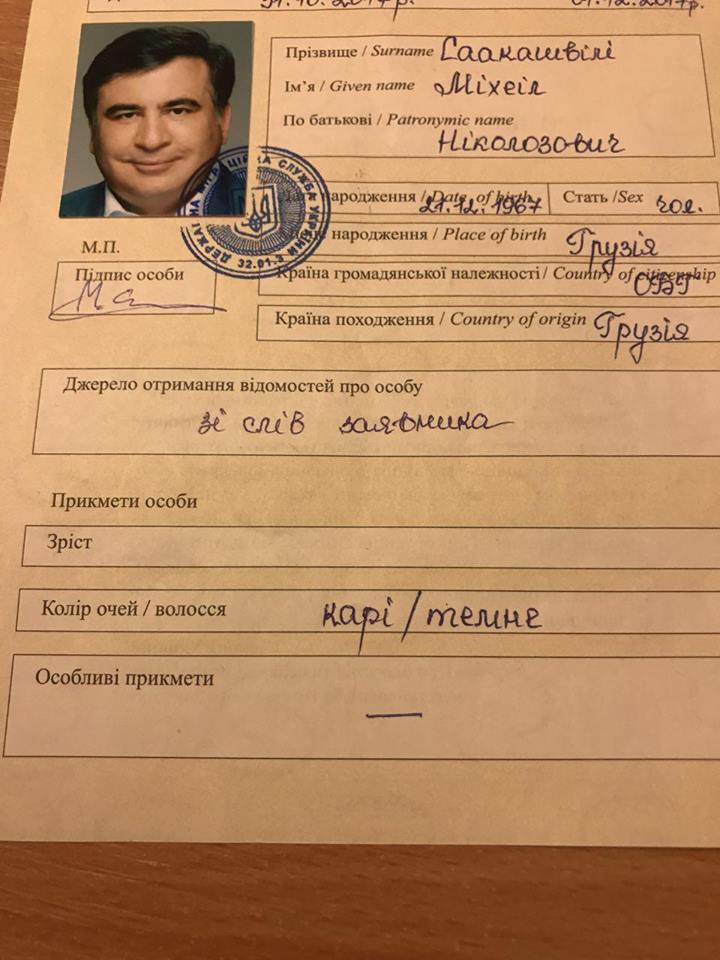 31.10.2017р. 01.12.2017р.
Прізвище / Surname Саакашвілі
Ім'я / Given name Міхеіл
По батькові / Patronymic name
Ніколозович
народження / Date of birth 21.12.1967 Стать /Sex чол.
народження / Place of birth Грузія
М.П.
Підпис особи
Країна громадянської належності / Country of citizenship
ОБГ
Країна походження / Country of origin Грузія
ДЕРЖАВНА МІГРАЦІЙНА СЛУЖБА УКРАЇНИ
Джерело отримання відомостей про особу
зі слів заявника
Прикмети особи
Зріст
Колір очей / волосся карі/темне
Особливі прикмети
—